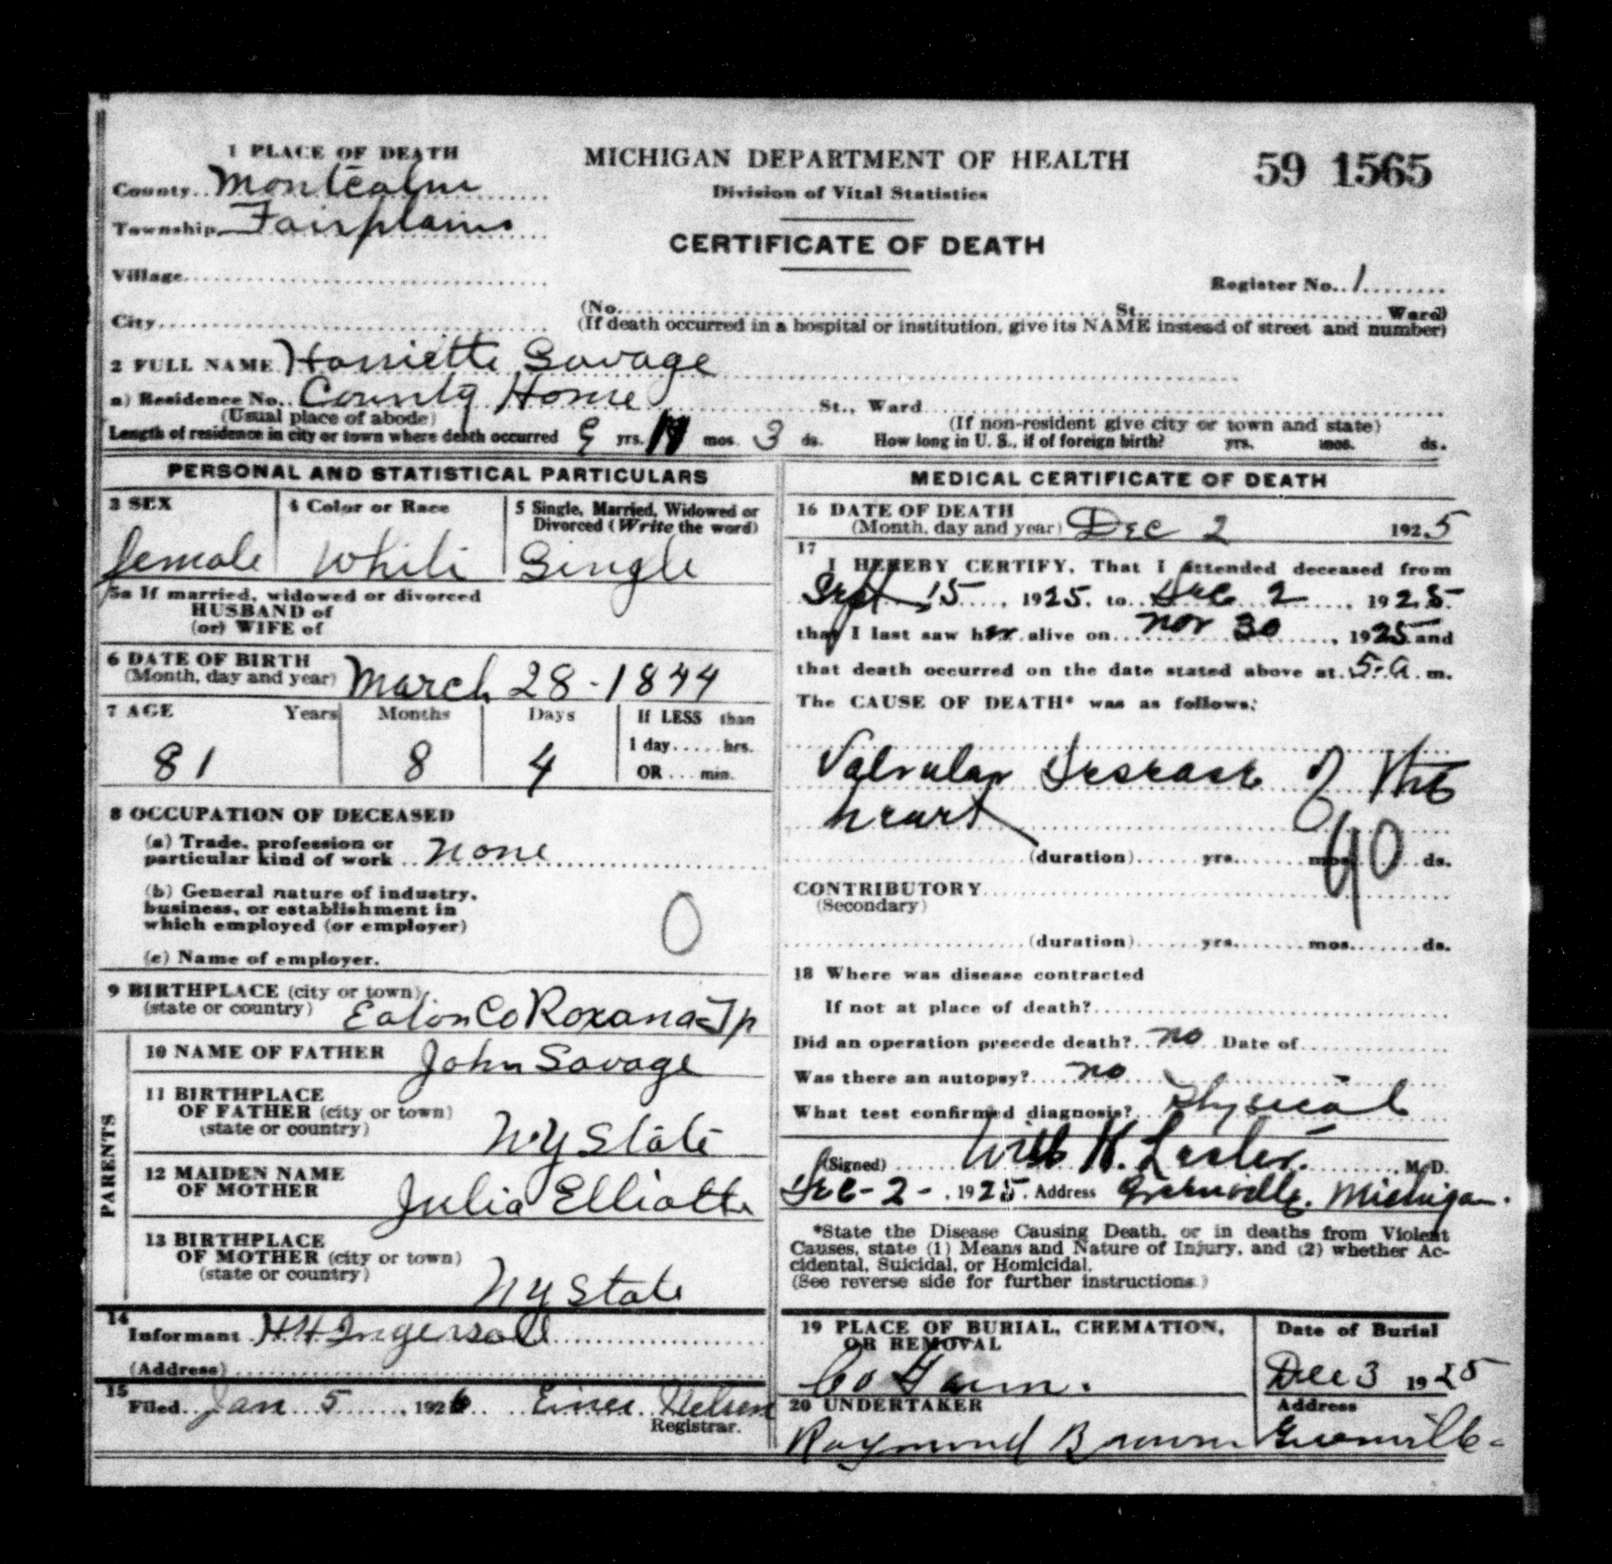 1 PLACE OF DEATH
County Montcalm
Township Fairplains
Village
City
MICHIGAN DEPARTMENT OF HEALTH
Division of Vital Statistics
CERTIFICATE OF DEATH
59 1565
Register No. 1
(No. St. Ward)
(If death occurred in a hospital or institution, give its NAME instead of street and number)
2 FULL NAME Harriette Savage
a) Residence No. County Home St., Ward
(Usual place of abode) (If non-resident give city or town and state)
Length of residence in city or town where death occurred 9 yrs. mos. 3 ds. How long in U. S., if of foreign birth? yrs. mos. ds.
PERSONAL AND STATISTICAL PARTICULARS
3 SEX 4 Color or Race 5 Single, Married, Widowed or
Divorced (Write the word)
female White Single
5a If married, widowed or divorced
HUSBAND of
(or) WIFE of
6 DATE OF BIRTH
(Month, day and year) March 28-1844
7 AGE Years Months Days If LESS than
1 day.....hrs.
81 8 4 OR ... min.
8 OCCUPATION OF DECEASED
(a) Trade, profession or
particular kind of work none
(b) General nature of industry,
business, or establishment in
which employed (or employer) 0
(c) Name of employer.
9 BIRTHPLACE (city or town)
(state or country) Eaton Co Roxana Tp
PARENTS
10 NAME OF FATHER John Savage
11 BIRTHPLACE
OF FATHER (city or town)
(state or country) NY State
12 MAIDEN NAME
OF MOTHER Julia Elliotte
13 BIRTHPLACE
OF MOTHER (city or town)
(state or country) NY State
14
Informant H.H. Ingersoll
(Address)
15
Filed Jan 5, 1926 Einer Nelson
Registrar.
MEDICAL CERTIFICATE OF DEATH
16 DATE OF DEATH
(Month, day and year) Dec 2 1925
17
I HEREBY CERTIFY, That I attended deceased from
Sept 15, 1925, to Dec 2, 1925
that I last saw her alive on Nov 30, 1925 and
that death occurred on the date stated above at 5-a.m.
The CAUSE OF DEATH* was as follows:
Valvular Disease of the
heart
90
(duration) yrs. mos. ds.
CONTRIBUTORY
(Secondary)
(duration) yrs. mos. ds.
18 Where was disease contracted
If not at place of death?
Did an operation precede death? no Date of
Was there an autopsy? no
What test confirmed diagnosis? Physical
(Signed) Will H. Lester, M.D.
Dec-2-, 1925. Address Greenville, Michigan.
*State the Disease Causing Death, or in deaths from Violent
Causes, state (1) Means and Nature of Injury, and (2) whether Ac-
cidental, Suicidal, or Homicidal.
(See reverse side for further instructions.)
19 PLACE OF BURIAL, CREMATION,
OR REMOVAL
Co Farm.
Date of Burial
Dec 3 1925
20 UNDERTAKER
Raymond Brown
Address
Greenville